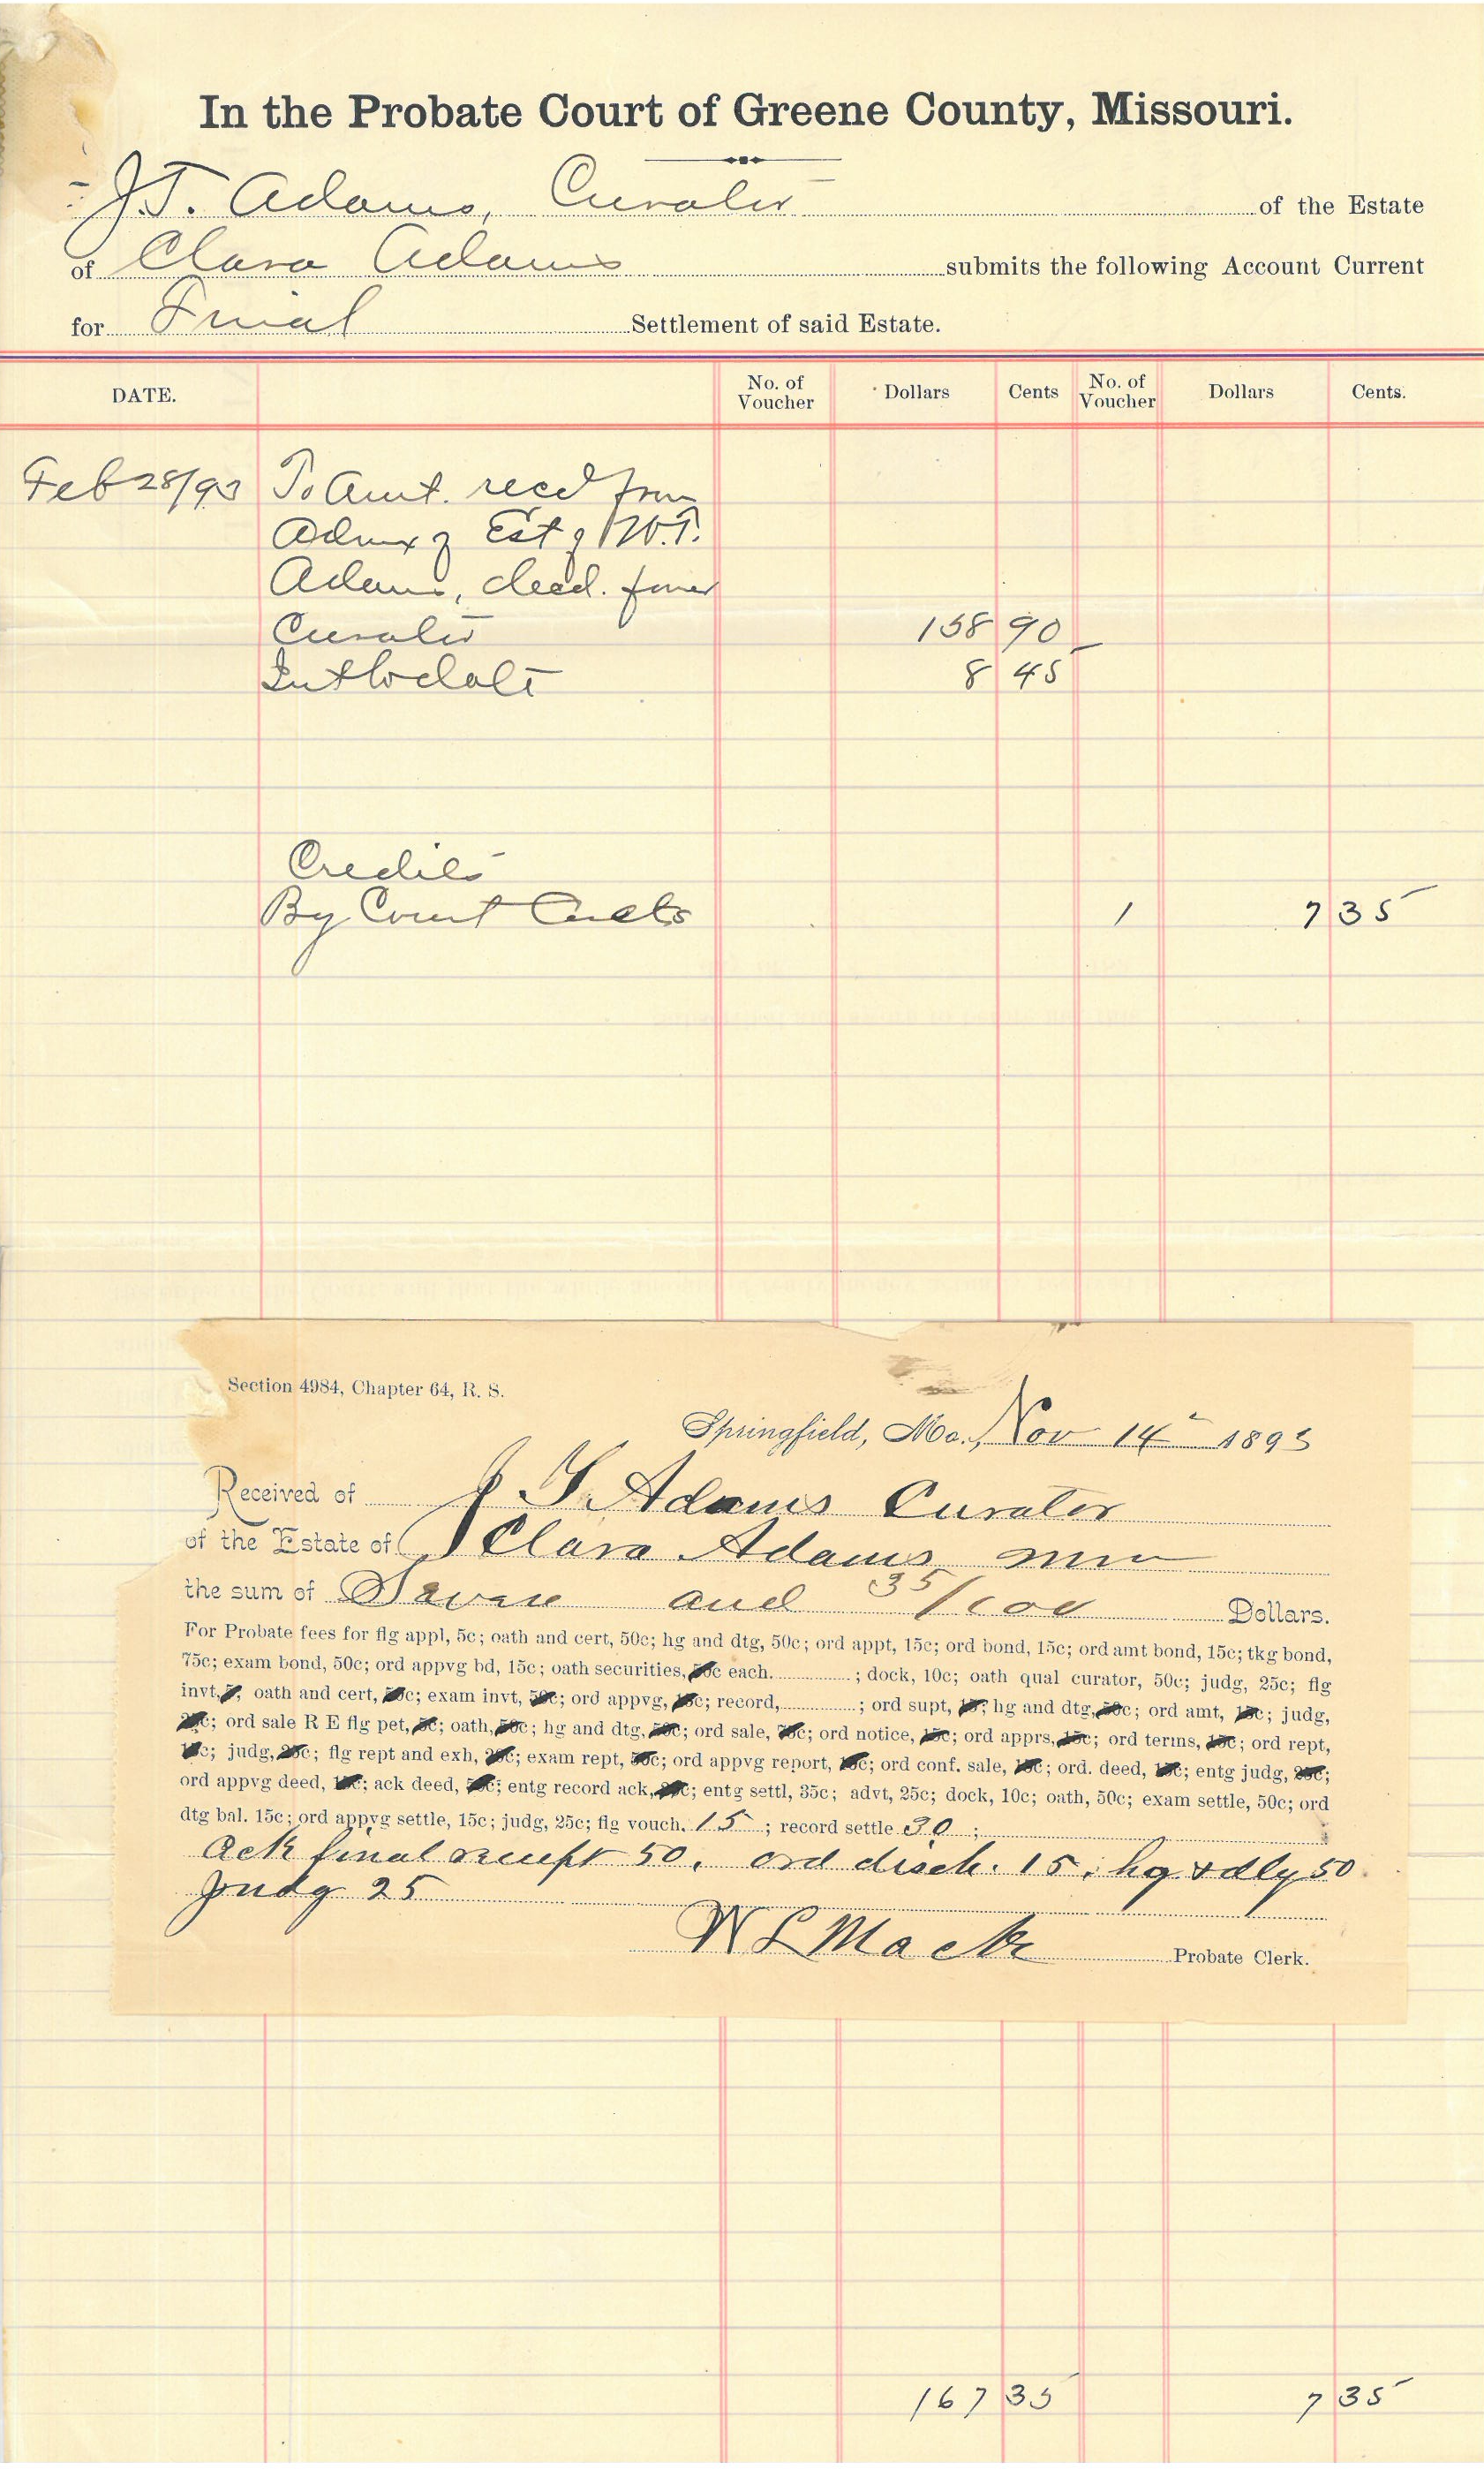 In the Probate Court of Greene County, Missouri.
J.T. Adams, Curator of the Estate
of Clara Adams submits the following Account Current
for Final Settlement of said Estate.
DATE. No. of Voucher Dollars Cents No. of Voucher Dollars Cents.
Feb 28/93 To Amt. recd from
Admx of Est of W.T.
Adams, decd. former
Curator 158 90
Int to date 8 45
Credits
By Court Costs 1 7 35
Section 4984, Chapter 64, R. S.
Springfield, Mo., Nov 14" 1893
Received of J T Adams Curator
of the Estate of Clara Adams
the sum of Seven and 35/100 Dollars.
For Probate fees for flg appl, 5c; oath and cert, 50c; hg and dtg, 50c; ord appt, 15c; ord bond, 15c; ord amt bond, 15c; tkg bond,
75c; exam bond, 50c; ord appvg bd, 15c; oath securities, c each. ; dock, 10c; oath qual curator, 50c; judg, 25c; flg
invt, oath and cert, c; exam invt, c; ord appvg, c; record, ; ord supt, ; hg and dtg, c; ord amt, c; judg,
c; ord sale R E flg pet, c; oath, c; hg and dtg, c; ord sale, c; ord notice, c; ord apprs, c; ord terms, c; ord rept,
c; judg, c; flg rept and exh, c; exam rept, c; ord appvg report, c; ord conf. sale, c; ord. deed, c; entg judg, c;
ord appvg deed, c; ack deed, c; entg record ack, c; entg settl, 35c; advt, 25c; dock, 10c; oath, 50c; exam settle, 50c; ord
dtg bal. 15c; ord appvg settle, 15c; judg, 25c; flg vouch. 15 ; record settle 30 ;
Ack final receipt 50, ord disch. 15; hg & dtg 50
Judg 25
W L Mack Probate Clerk.
167 35 7 35